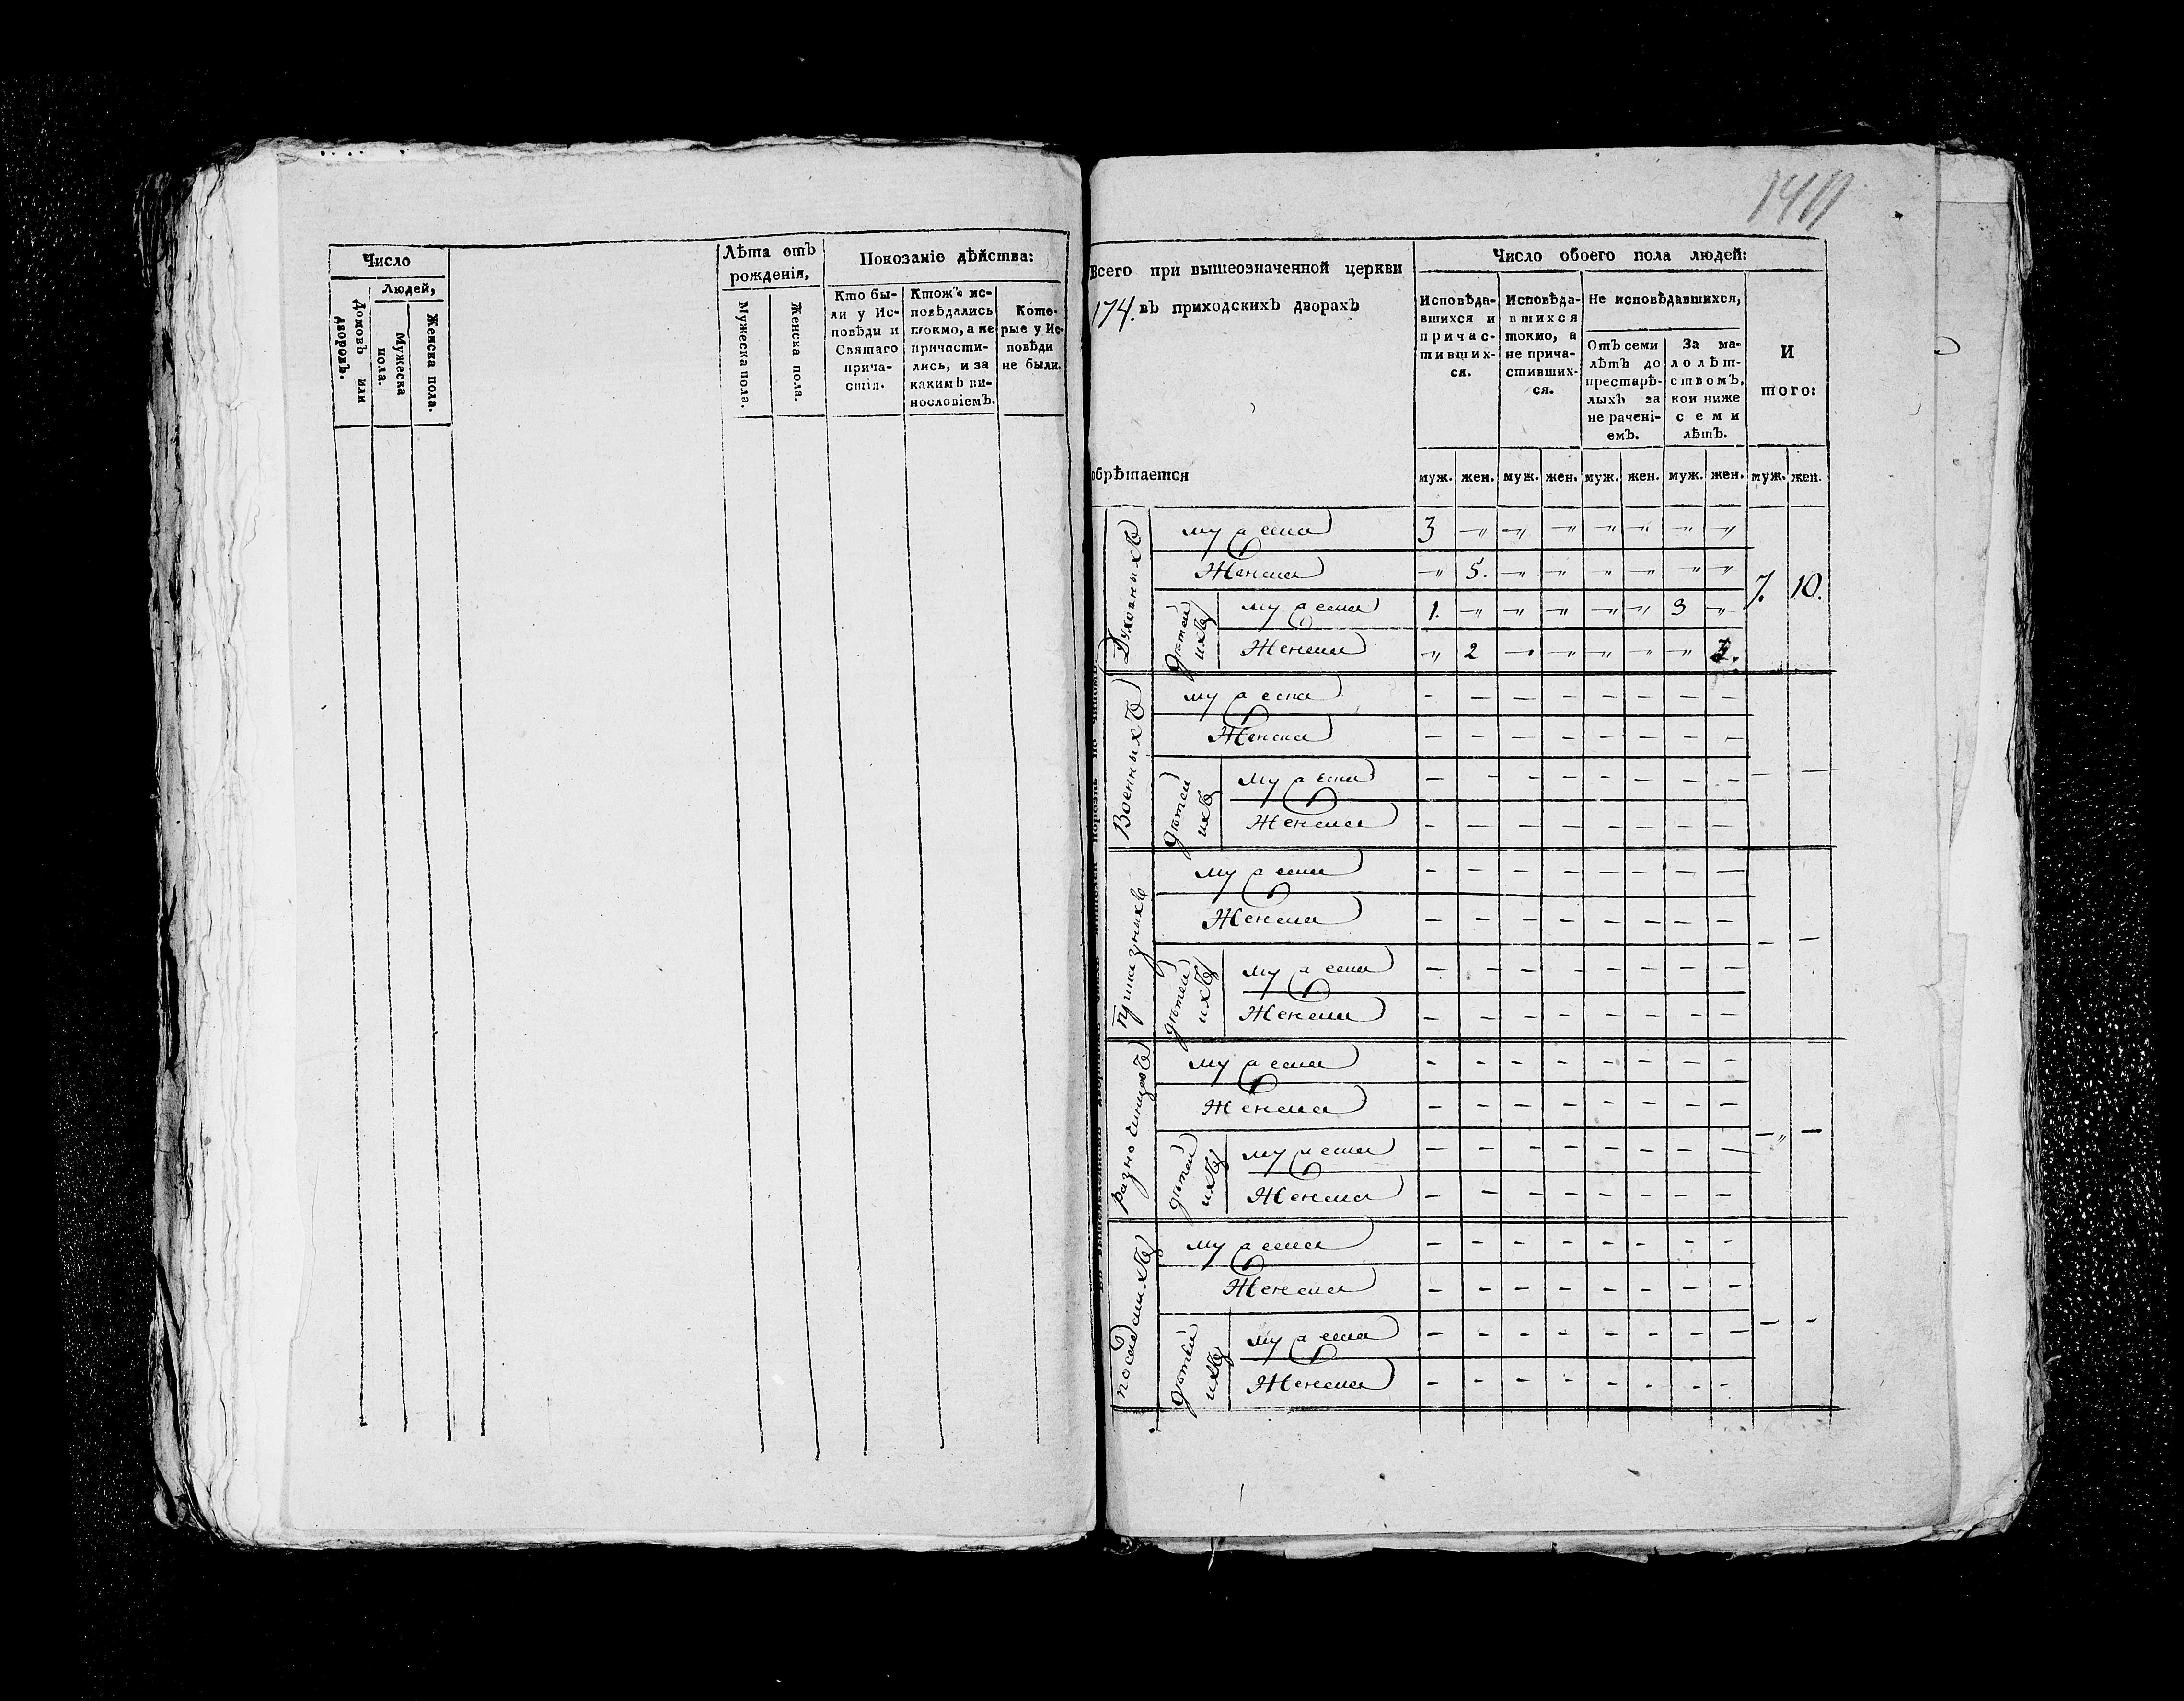 Число
Людей,
Домовъ или дворовъ.
Мужеска пола.
Женска пола.
Лѣта отъ
рожденія,
Мужеска пола.
Женска пола.
Показаніе дѣйства:
Кто бы-
ли у Ис-
повѣди и
Святаго
прича-
стія.
Ктожъ ис-
повѣдались
токмо, а не
причасти-
лись, и за
какимъ ви-
нословіемъ.
Кото-
рые у Ис-
повѣди
не были.
Всего при вышеозначенной церкви
174. въ приходскихъ дворахъ
обрѣтается
Число обоего пола людей:
Исповѣда-
вшихся и
причас-
тивших-
ся.
Исповѣда-
вшихся
токмо, а
не прича-
стивших-
ся.
Не исповѣдавшихся,
Отъ семи
лѣтъ до
престарѣ-
лыхъ за
не рачені-
емъ.
За ма-
лолѣт-
ствомъ,
кои ниже
семи
лѣтъ.
И
того:
муж. жен. муж. жен. муж. жен. муж. жен. муж. жен.
Духовныхъ
мужеска 3 -„ -„ -„ -„ -„ -„ -„
Женска -„ 5. -„ -„ -„ -„ -„ -„
7. 10.
дѣтей ихъ
мужеска 1. -„ -„ -„ -„ -„ 3 -„
Женска -„ 2 -„ -„ -„ -„ -„ 3.
Военныхъ
мужеска - - - - - - - -
Женска - - - - - - - -
дѣтей ихъ
мужеска - - - - - - - - - -
Женска - - - - - - - -
Приказныхъ
мужеска - - - - - - - -
Женска - - - - - - - -
- -
дѣтей ихъ
мужеска - - - - - - - -
Женска - - - - - - - -
разночинцовъ
мужеска - - - - - - - -
Женска - - - - - - - -
-„ -
дѣтей ихъ
мужеска - - - - - - - -
Женска - - - - - - - -
посадскихъ
мужеска - - - - - - - -
Женска - - - - - - - -
- -
дѣтей ихъ
мужеска - - - - - - - -
Женска - - - - - - - -